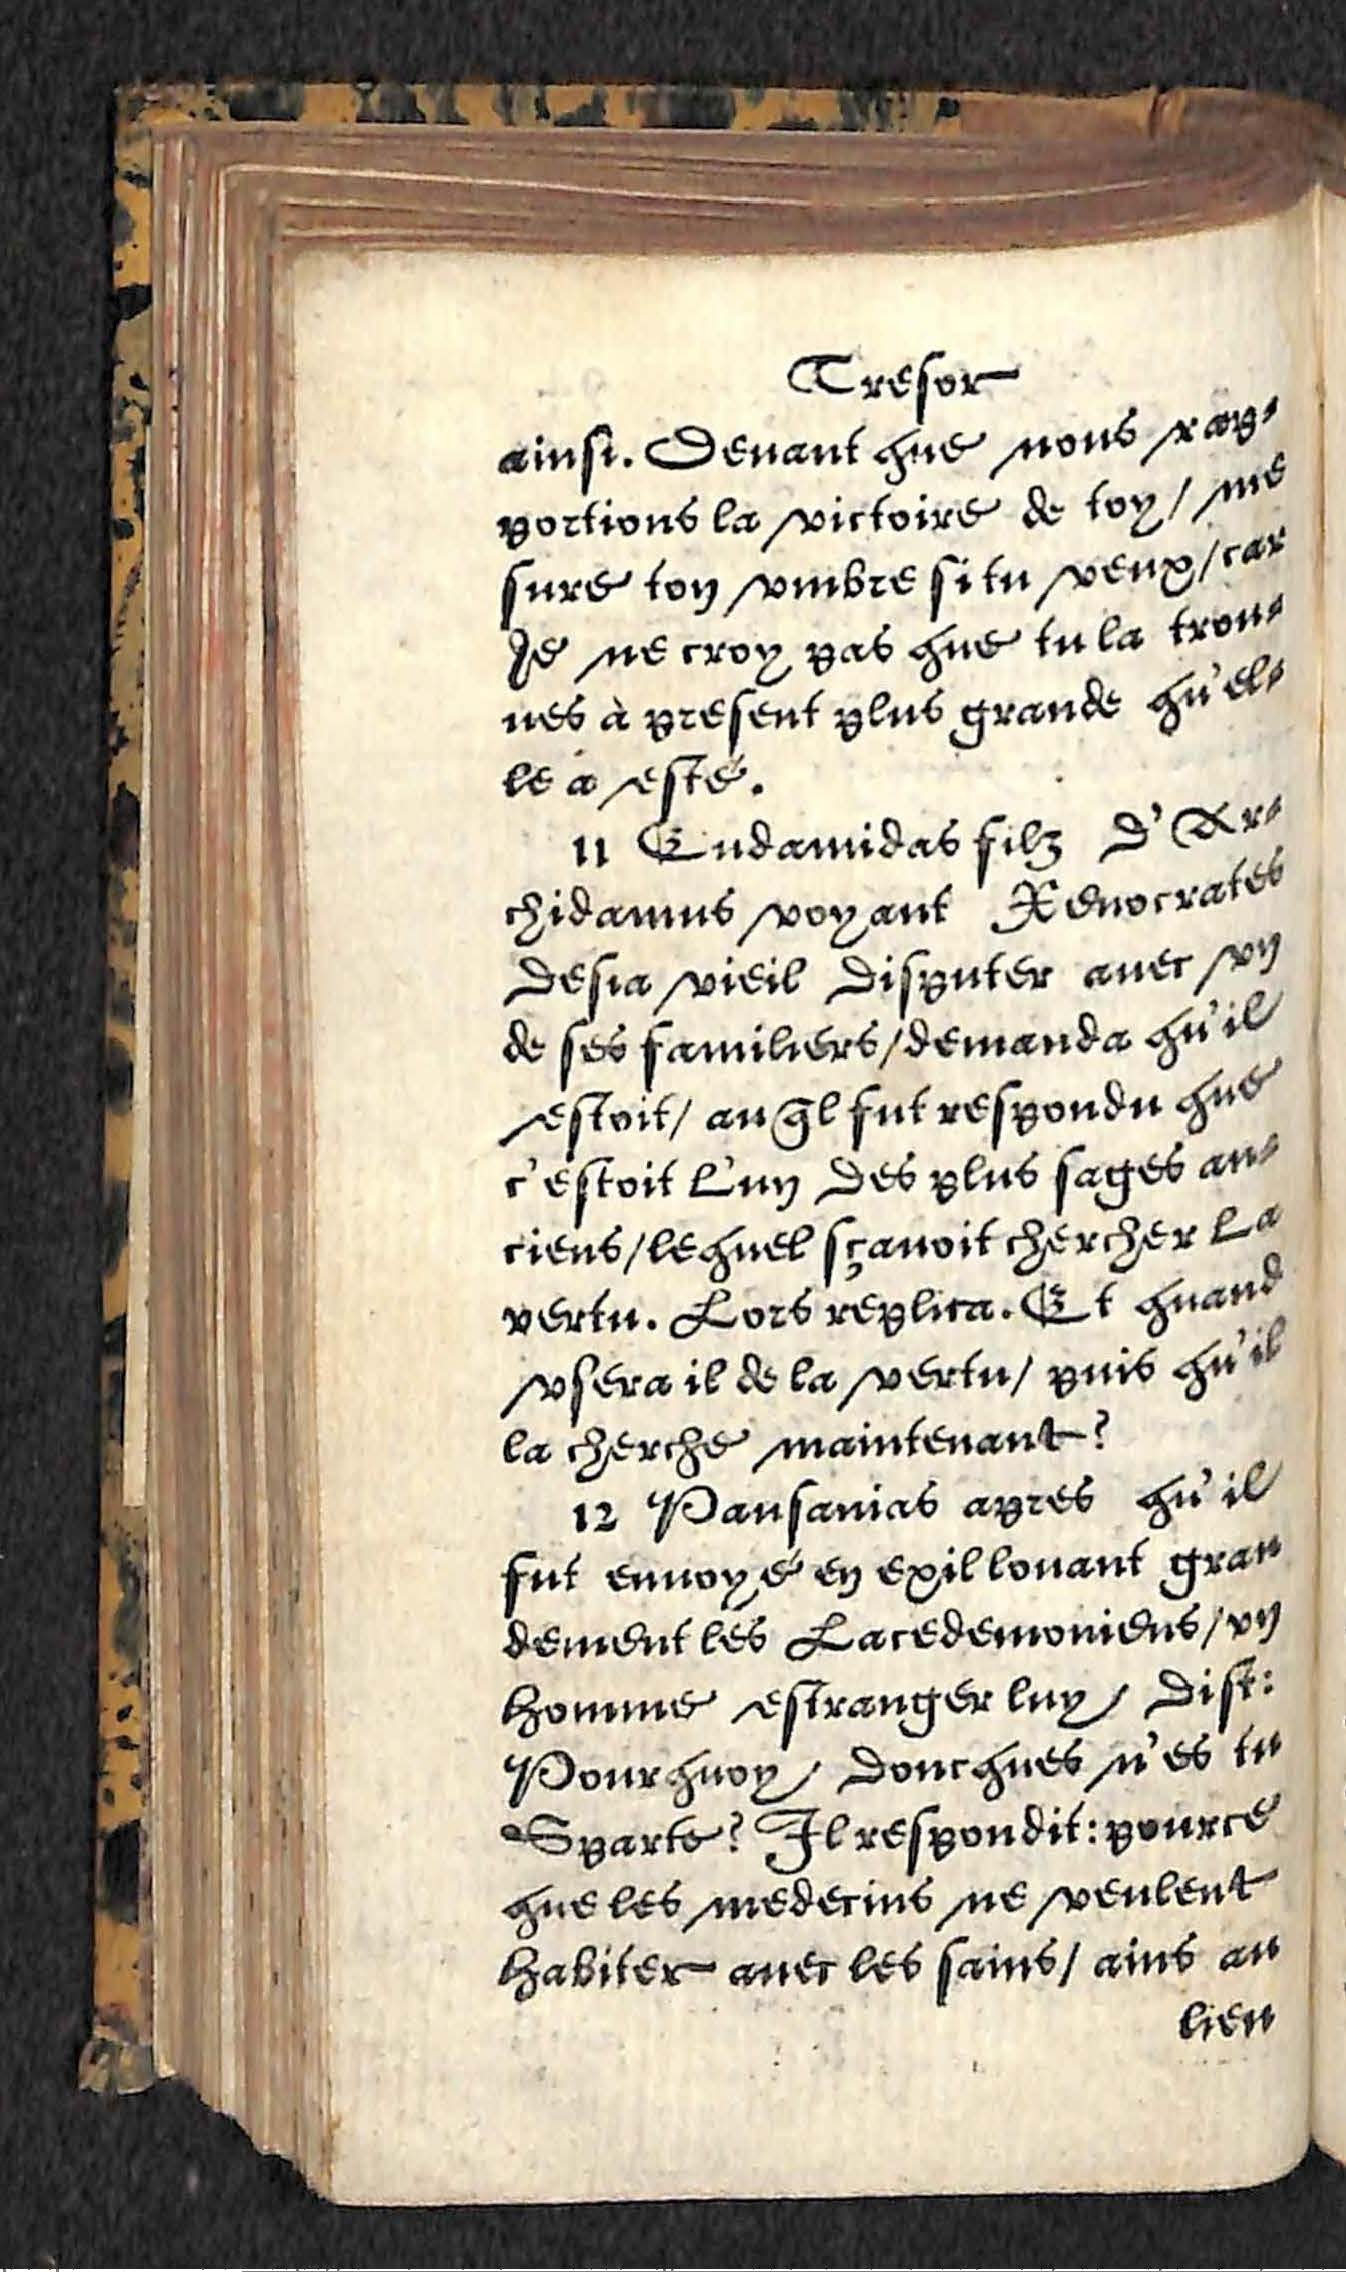 Tresor
ainsi. Deuant que nous rap-
portions la victoire de toy/ me
sure ton vmbre si tu veux/ car
Je ne croy pas que tu la trou-
ues à present plus grande qu'el-
le a esté.
11 Eudamidas filz D'Ar-
chidamus voyant Xenocrates
Desia vieil Disputer auec vn
de ses familiers/ demanda qu'il
estoit/ au q̃l fut respondu que
c'estoit L'un Des plus sages an-
ciens/ lequel sçauoit chercher La
vertu. Lors replica. Et quand
vsera il de la vertu/ puis qu'il
la cherche maintenant?
12 Pausanias apres qu'il
fut enuoyé en exil louant gran
dement les Lacedemoniens/ vn
homme estranger luy Dist:
Pourquoy Doncques n'es tu
Sparte? Il respondit: pource
que les medecins ne veulent
habiter auec les sains/ ains au
lieu